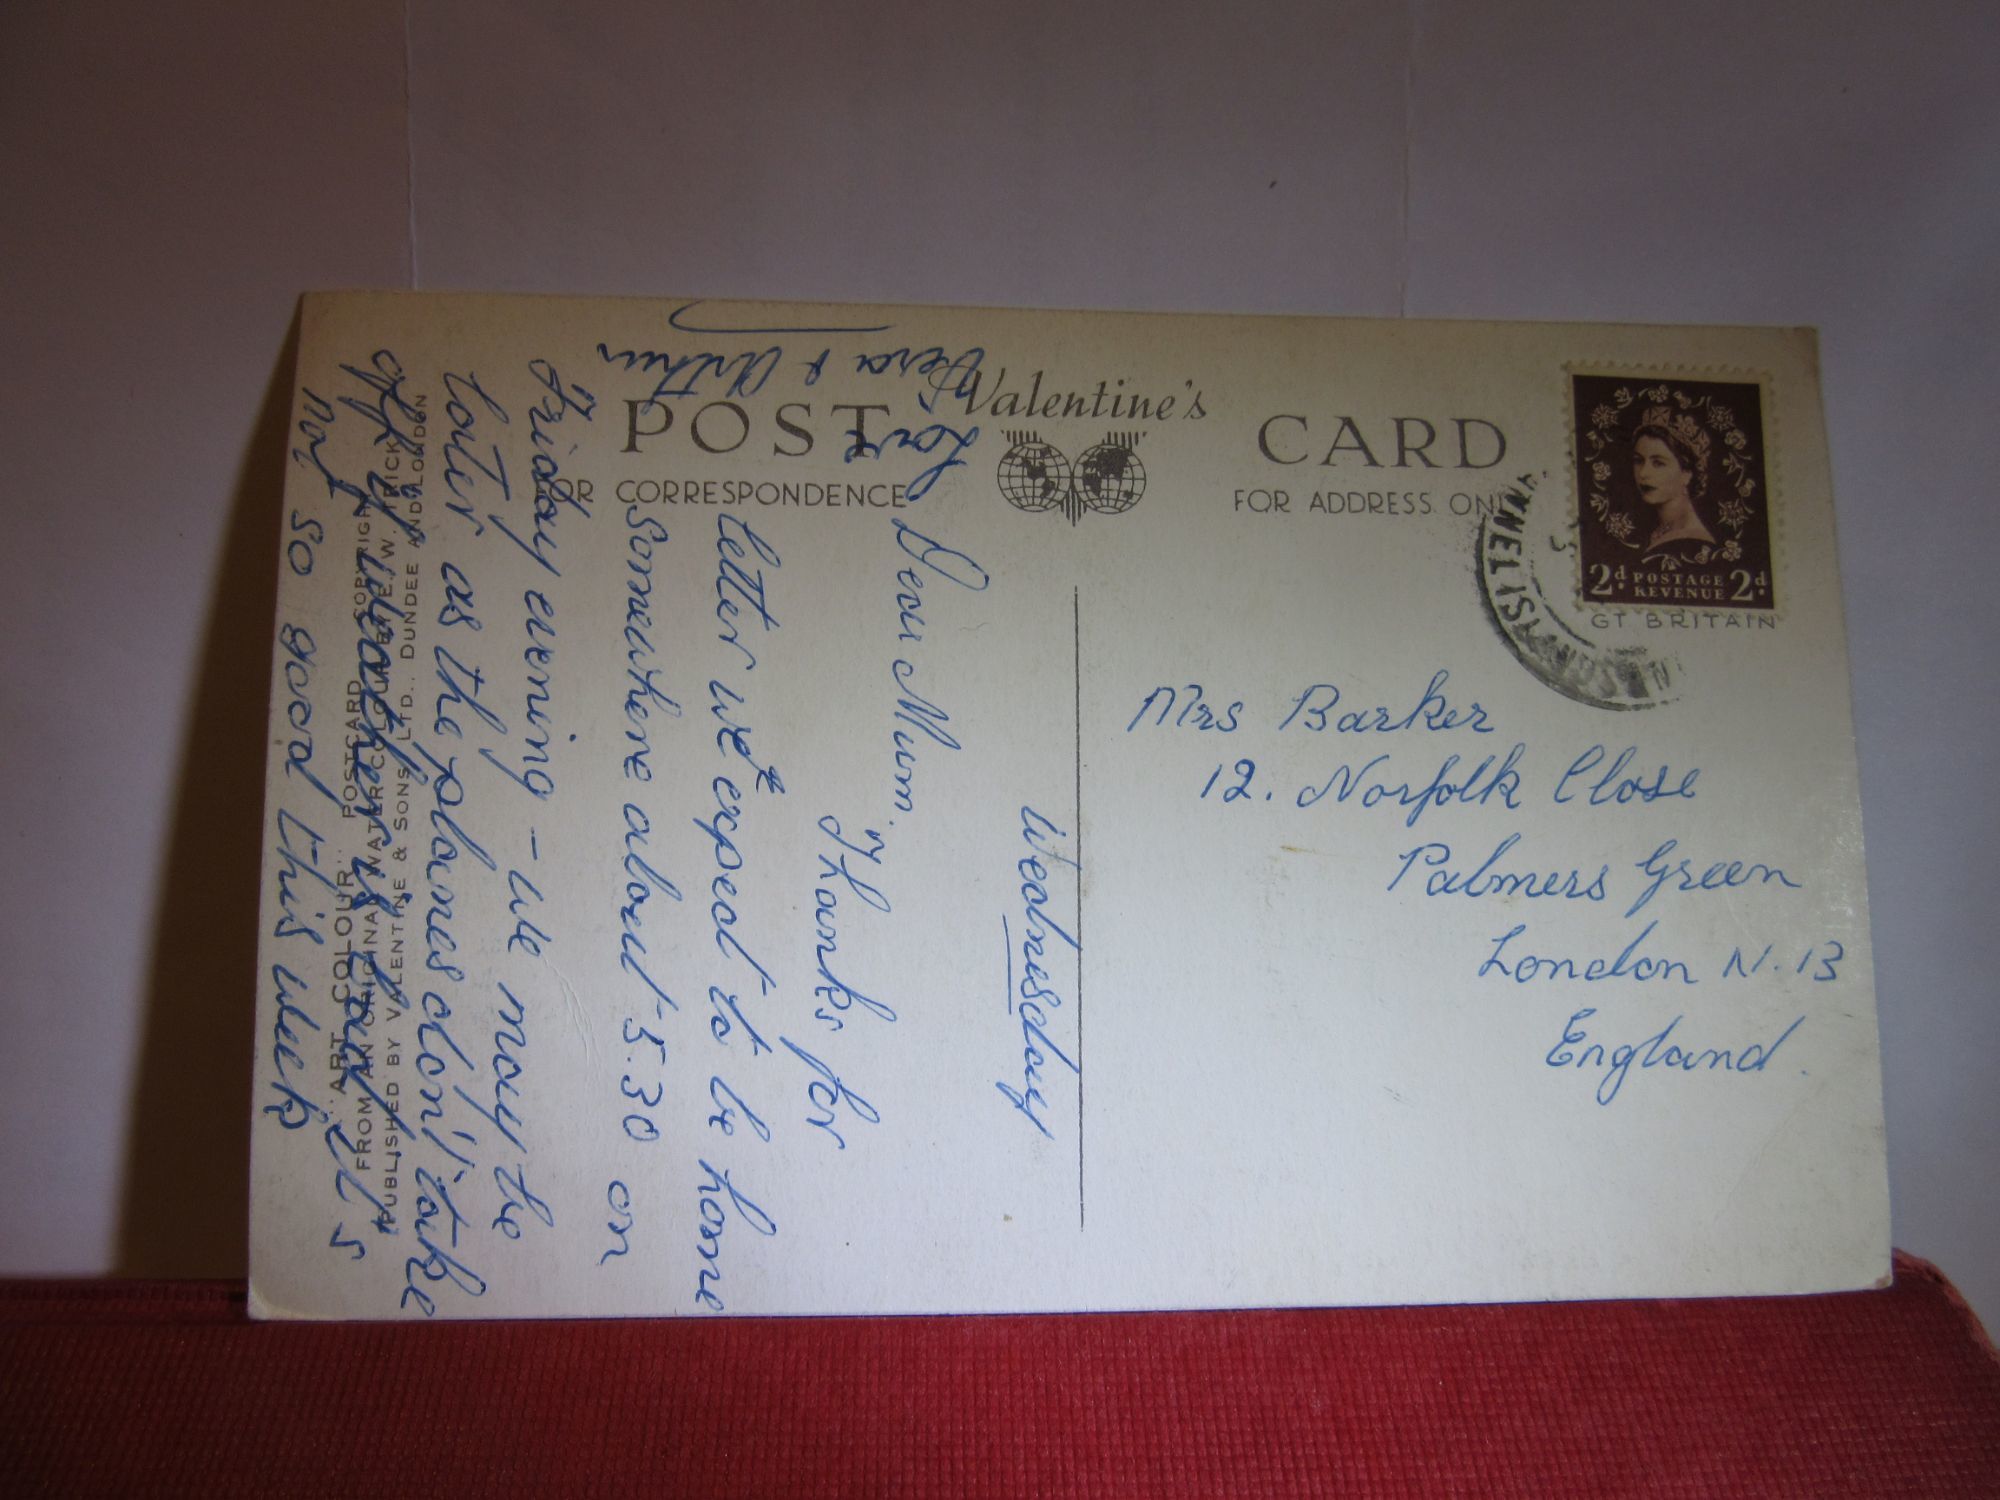 Valentine's
POST CARD
FOR CORRESPONDENCE
FOR ADDRESS ONLY
2d POSTAGE 2d
REVENUE
GT BRITAIN
Mrs Barker
12. Norfolk Close
Palmers Green
London N. 13
England.
Wednesday
Dear Mum.
Thanks for
letter we expect to be home
somewhere about 5.30 on
Friday evening - we may be
later as the planes don't take
off if weather is bad it's
not so good this week
Love
Vera & Arthur
"ART COLOUR" POSTCARD COPYRIGHT
FROM AN ORIGINAL WATER-COLOUR BY E. W. TRICK
PUBLISHED BY VALENTINE & SONS, LTD., DUNDEE AND LONDON